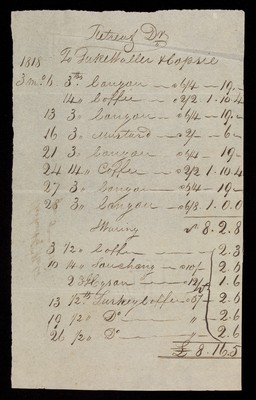 Retreat Dr
To Luke Waller & Copsie
1818
3 mo 6 3 lb Congou — 6/4 — 19 -
14 lo Coffee — 2/2 1.10.4
13 3 o Congou — 6/4 — 19 -
16 3 o Mustard — 2/- — 6 -
21 3 o Congou — 6/4 — 19 -
24 14 o Coffee — 2/2 1.10.4
27 3 o Congou — 6/4 — 19 -
28 3 o Congou — 6/8 1.0.0
£ 8.2.8
3 1/2 o Coffe — 2.3
10 1/4 o Souchong — 10/- 2.6
2 oz Hyson — 12/- 1.6
13 1/2 lb Turkey Coffe 5/- 2.6
19 1/2 o Do — " — 2.6
26 1/2 o Do — " — 2.6
£ 8.16.5